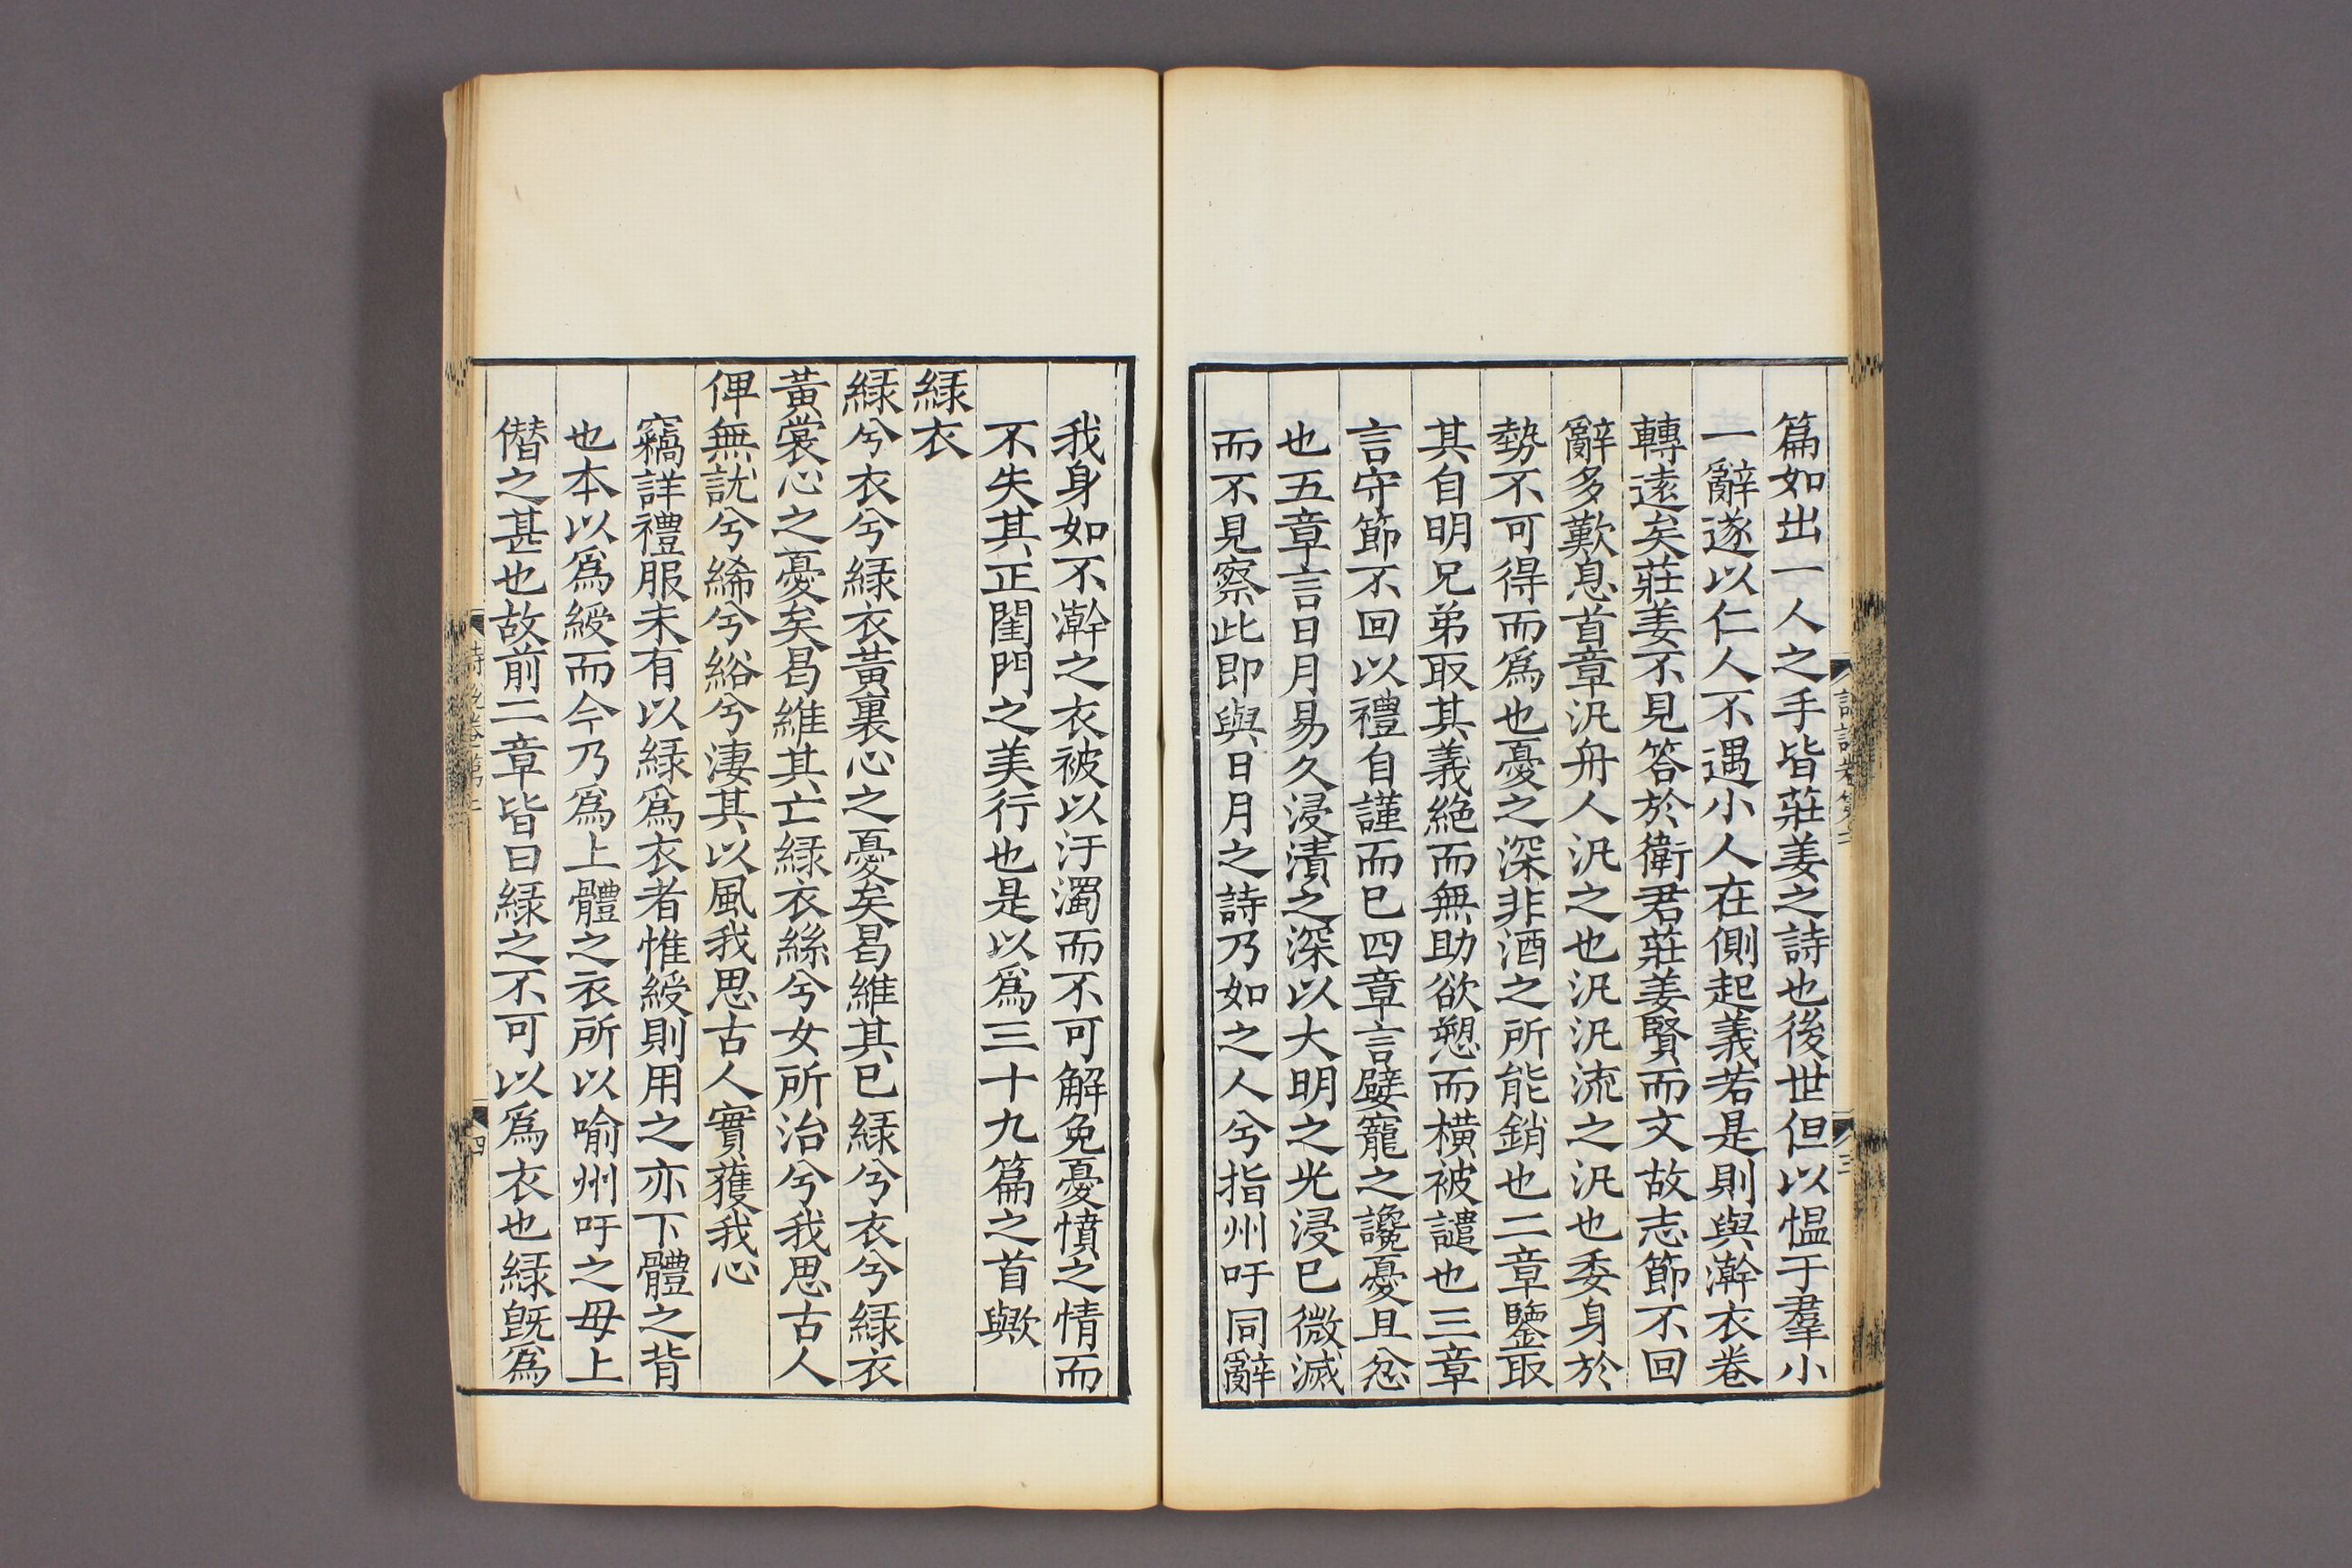 篇如出一人之手皆莊姜之詩也後世但以慍于羣小
一辭遂以仁人不遇小人在側起義若是則與澣衣卷
轉遠矣莊姜不見答於衛君莊姜賢而文故志節不回
辭多歎息首章汎舟人汎之也汎汎流之汎也委身於
勢不可得而爲也憂之深非酒之所能銷也二章鑒取
其自明兄弟取其義絶而無助欲愬而橫被譴也三章
言守節不回以禮自謹而已四章言嬖寵之讒憂且忿
也五章言日月易久浸漬之深以大明之光浸已微滅
而不見察此即與日月之詩乃如之人兮指州吁同辭
我身如不澣之衣被以汙濁而不可解免憂憤之情而
不失其正閨門之美行也是以爲三十九篇之首歟
緑衣
緑兮衣兮緑衣黃裏心之憂矣曷維其已緑兮衣兮緑衣
黃裳心之憂矣曷維其亡緑衣絲兮女所治兮我思古人
俾無訧兮絺兮綌兮淒其以風我思古人實獲我心
竊詳禮服未有以緑爲衣者惟綬則用之亦下體之背
也本以爲綬而今乃爲上體之衣所以喻州吁之母上
僭之甚也故前二章皆曰緑之不可以爲衣也緑旣爲
詩說卷第二
三
詩說卷第二
四